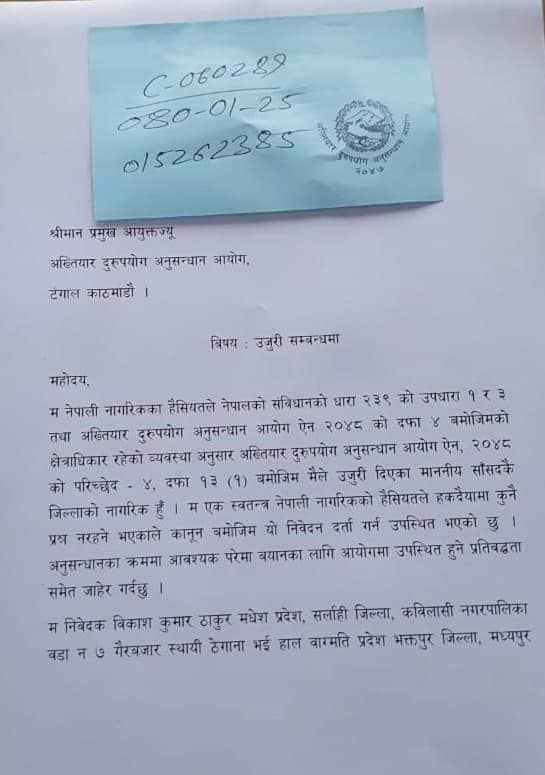 C-060289
080-01-25
015262385
अख्तियार दुरुपयोग अनुसन्धान आयोग
२०४७
श्रीमान प्रमुख आयुक्तज्यू
अख्तियार दुरूपयोग अनुसन्धान आयोग,
टंगाल काठमाडौ ।
विषय : उजुरी सम्बन्धमा
महोदय,
म नेपाली नागरिकका हैसियतले नेपालको संविधानको धारा २३९ को उपधारा १ र ३
तथा अख्तियार दुरुपयोग अनुसन्धान आयोग ऐन २०४८ को दफा ४ बमोजिमको
क्षेत्राधिकार रहेको व्यवस्था अनुसार अख्तियार दुरुपयोग अनुसन्धान आयोग ऐन, २०४८
को परिच्छेद - ४, दफा १३ (१) बमोजिम मैले उजुरी दिएका माननीय साँसदकै
जिल्लाको नागरिक हुँ । म एक स्वतन्त्र नेपाली नागरिकको हैसियतले हकदैयामा कुनै
प्रश्न नरहने भएकाले कानून बमोजिम यो निवेदन दर्ता गर्न उपस्थित भएको छु ।
अनुसन्धानका क्रममा आबश्यक परेमा बयानका लागि आयोगमा उपस्थित हुने प्रतिबद्धता
समेत जाहेर गर्दछु ।
म निवेदक विकाश कुमार ठाकुर मधेश प्रदेश, सर्लाही जिल्ला, कविलासी नगरपालिका
वडा न ७ गैरबजार स्थायी ठेगाना भई हाल वाग्मति प्रदेश भक्तपुर जिल्ला, मध्यपुर